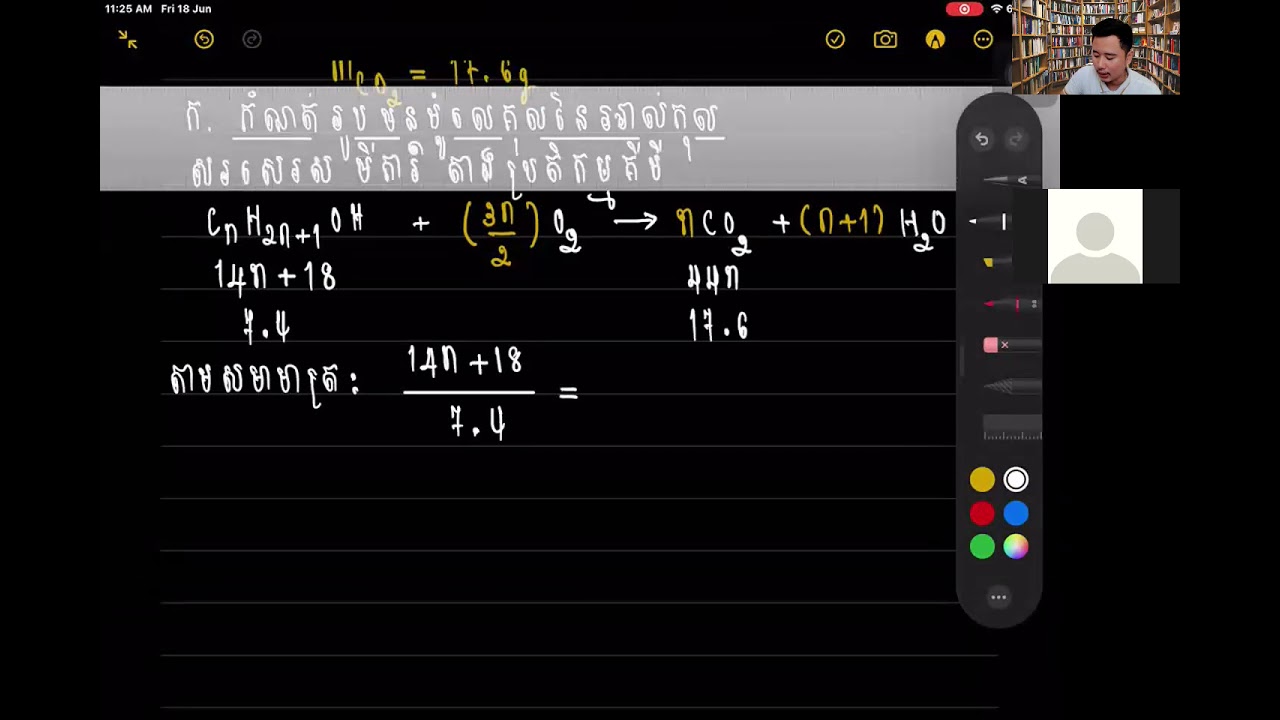 11:25 AM Fri 18 Jun
mCO₂ = 17.6g
ក. កំណត់រូបមន្តម៉ូលេគុលនៃអាល់កុល
សរសេរសមីការតាងប្រតិកម្មគីមី
CₙH₂ₙ₊₁OH + (3n/2) O₂ → nCO₂ + (n+1) H₂O
14n + 18 44n
7.4 17.6
តាមសមាមាត្រ: (14n + 18)/7.4 =